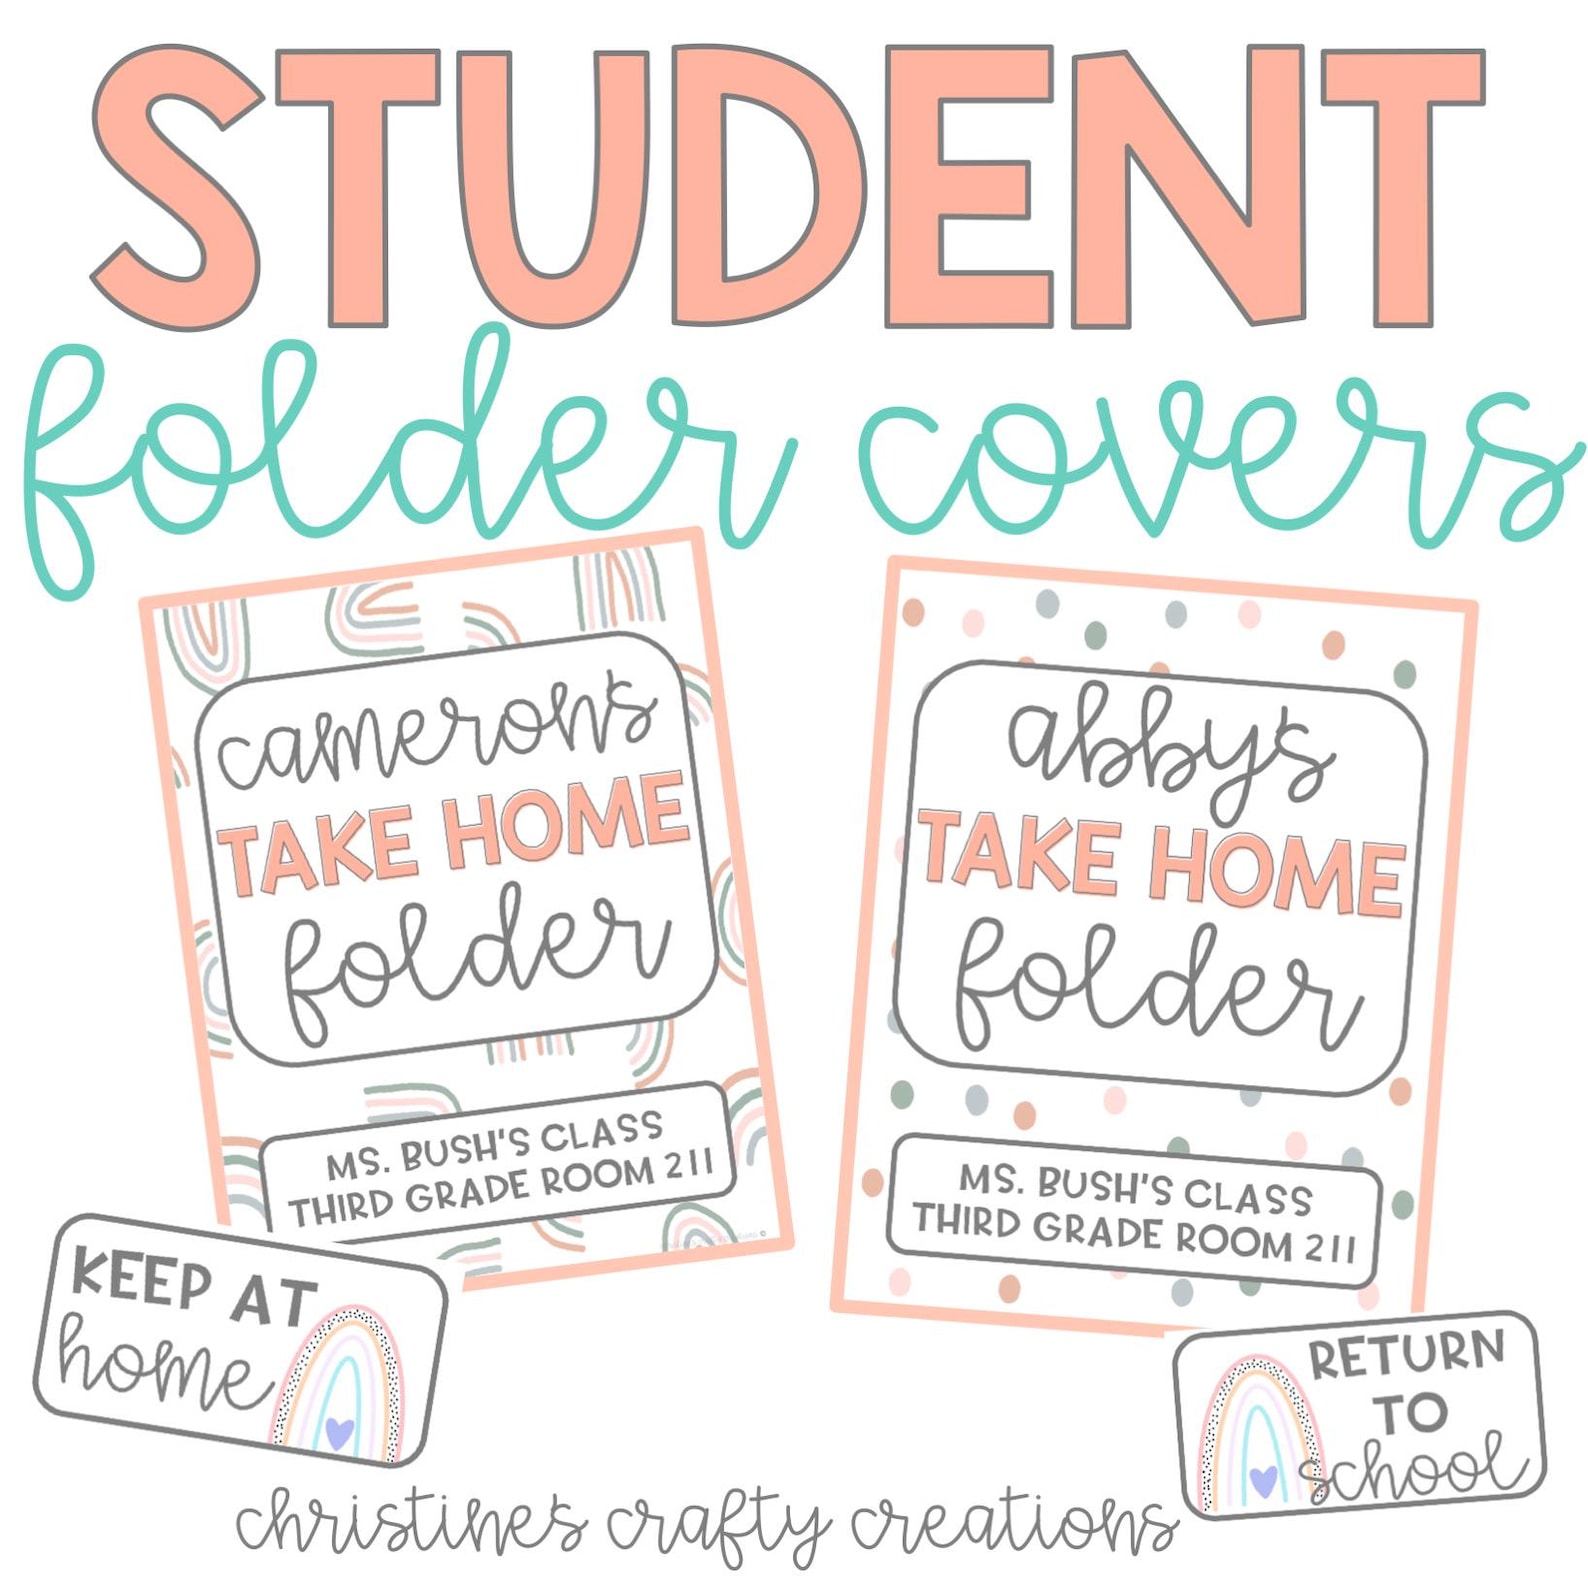 STUDENT
folder covers
cameron's
TAKE HOME
folder
MS. BUSH'S CLASS
THIRD GRADE ROOM 211
abby's
TAKE HOME
folder
MS. BUSH'S CLASS
THIRD GRADE ROOM 211
KEEP AT
home
RETURN
TO
school
christine's crafty creations